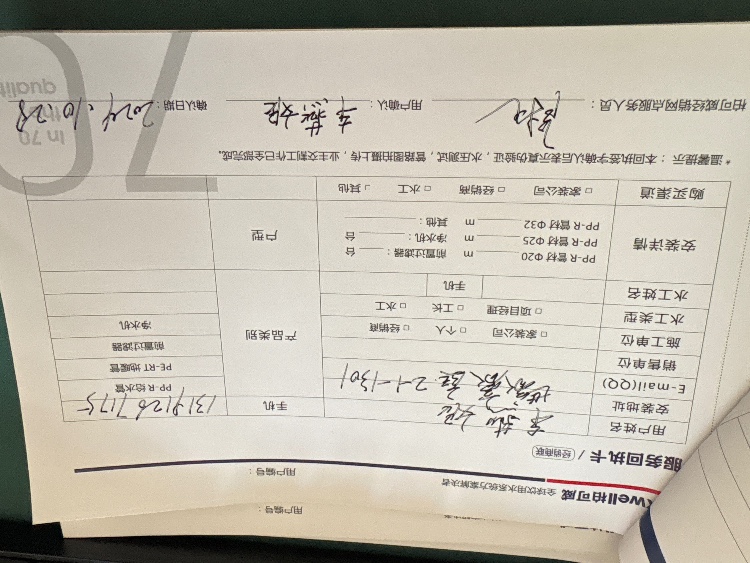 用户编号：
well柏可威 全球饮用水系统方案解决者
用户编号：
服务回执卡 / 经销商联
用户姓名 手机 13191267175
安装地址 2-1-1301
E-mail(QQ) 产品类别 PP-R 给水管
销售单位 PE-RT 地暖管
施工单位 □ 家装公司 □ 个人 □ 经销商 前置过滤器
水工类型 □ 项目经理 □ 工长 □ 水工 净水机
水工姓名 手机
安装详情 户型
PP-R 管材 Φ20 m 前置过滤器： 台
PP-R 管材 Φ25 m 净水机： 台
PP-R 管材 Φ32 m 其他：
购买渠道 □ 家装公司 □ 经销商 □ 水工 □ 其他
* 温馨提示：本回执签字确认后表示真伪验证，水压测试，管路图拍摄上传，业主交割工作已全部完成。
柏可威经销网点服务人员： 用户确认： 确认日期：2024.10.28
In 70
the
qualit